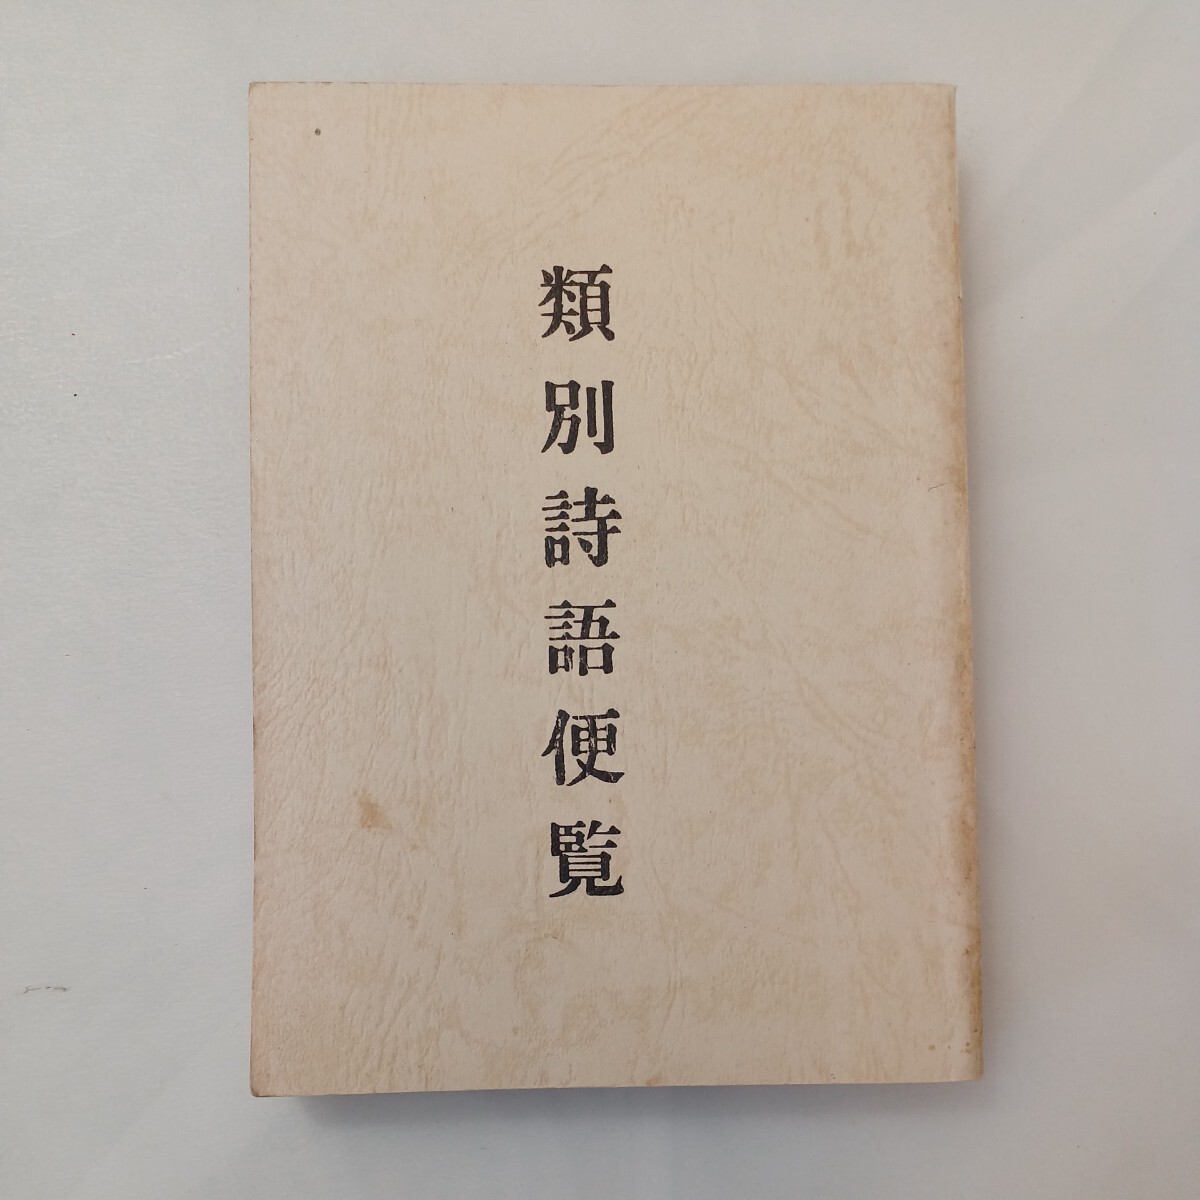 類別詩語便覧